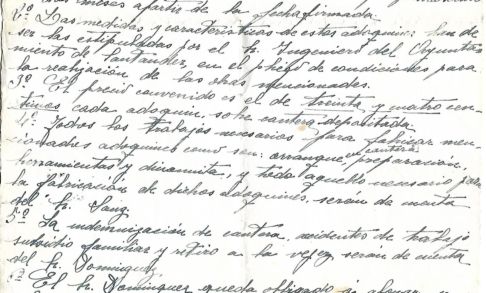 tres meses apartir de la fecha firmada.
2º Las medidas y características de estos adoquines: han de
ser las estipuladas por el Sr. Ingeniero del Ayunta-
miento de Santander, en el pliego de condiciones para
la realización de las obras mencionadas.
3º El precio convenido es el de treinta y cuatro cen-
timos cada adoquin, sobre cantera depositada.
4º Todos los trabajos necesarios para fabricar men-
cionados adoquines como son: arranque en cantera preparación,
herramientas y dinamita, y todo aquello necesario para
la fabricación de dichos adoquines, serán de cuenta
del Sr. Sanz.
5º La indemnización de cantera, accidentes de trabajo
subsidio familiar y retiro a la vejez, seran de cuenta
del Sr. Dominguez.
El Sr. Dominguez queda obligado á